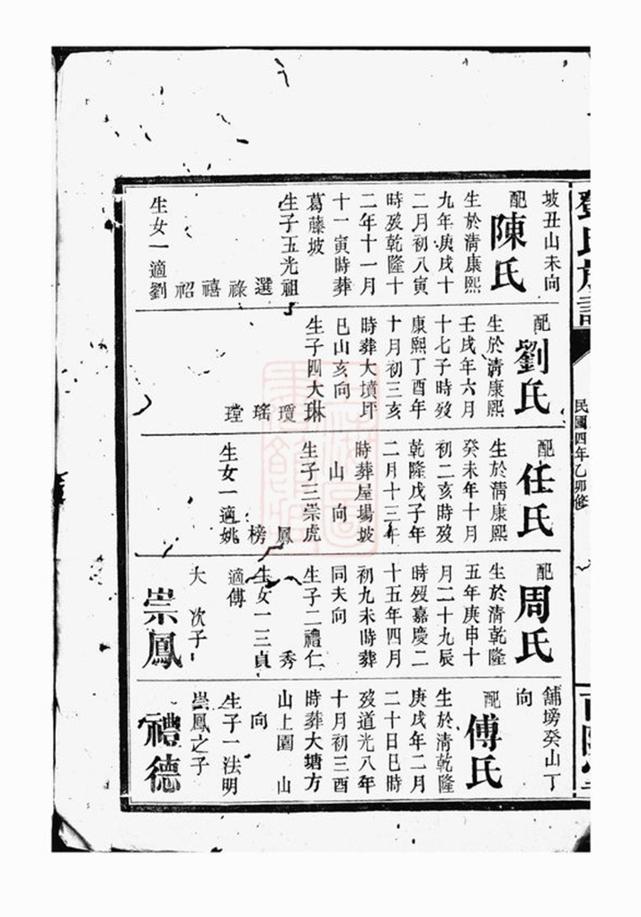 民國四年乙卯修
坡丑山未向
配陳氏
生於清康熙
九年庚戌十
二月初八寅
時歿乾隆十
二年十一月
十一寅時葬
葛藤坡
生子五光祖
選
祿
禧
祒
生女一適劉
配劉氏
生於清康熙
壬戌年六月
十七子時歿
康熙丁酉年
十月初三亥
時葬大墳坪
巳山亥向
生子四大琳
瓊
瑤
瑝
配任氏
生於清康熙
癸未年十月
初二亥時歿
乾隆戊子年
二月十三年
時葬屋場坡
山向
生子三崇虎
鳳
榜
生女一適姚
配周氏
生於清乾隆
五年庚申十
月二十九辰
時歿嘉慶二
十五年四月
初九未時葬
同夫向
生子二禮仁
秀
生女一三貞
適傅
大次子
崇鳳
舖塝癸山丁
向
配傅氏
生於清乾隆
庚戌年二月
二十日巳時
歿道光八年
十月初三酉
時葬大塘方
山上園山
向
生子一法明
崇鳳之子
禮德